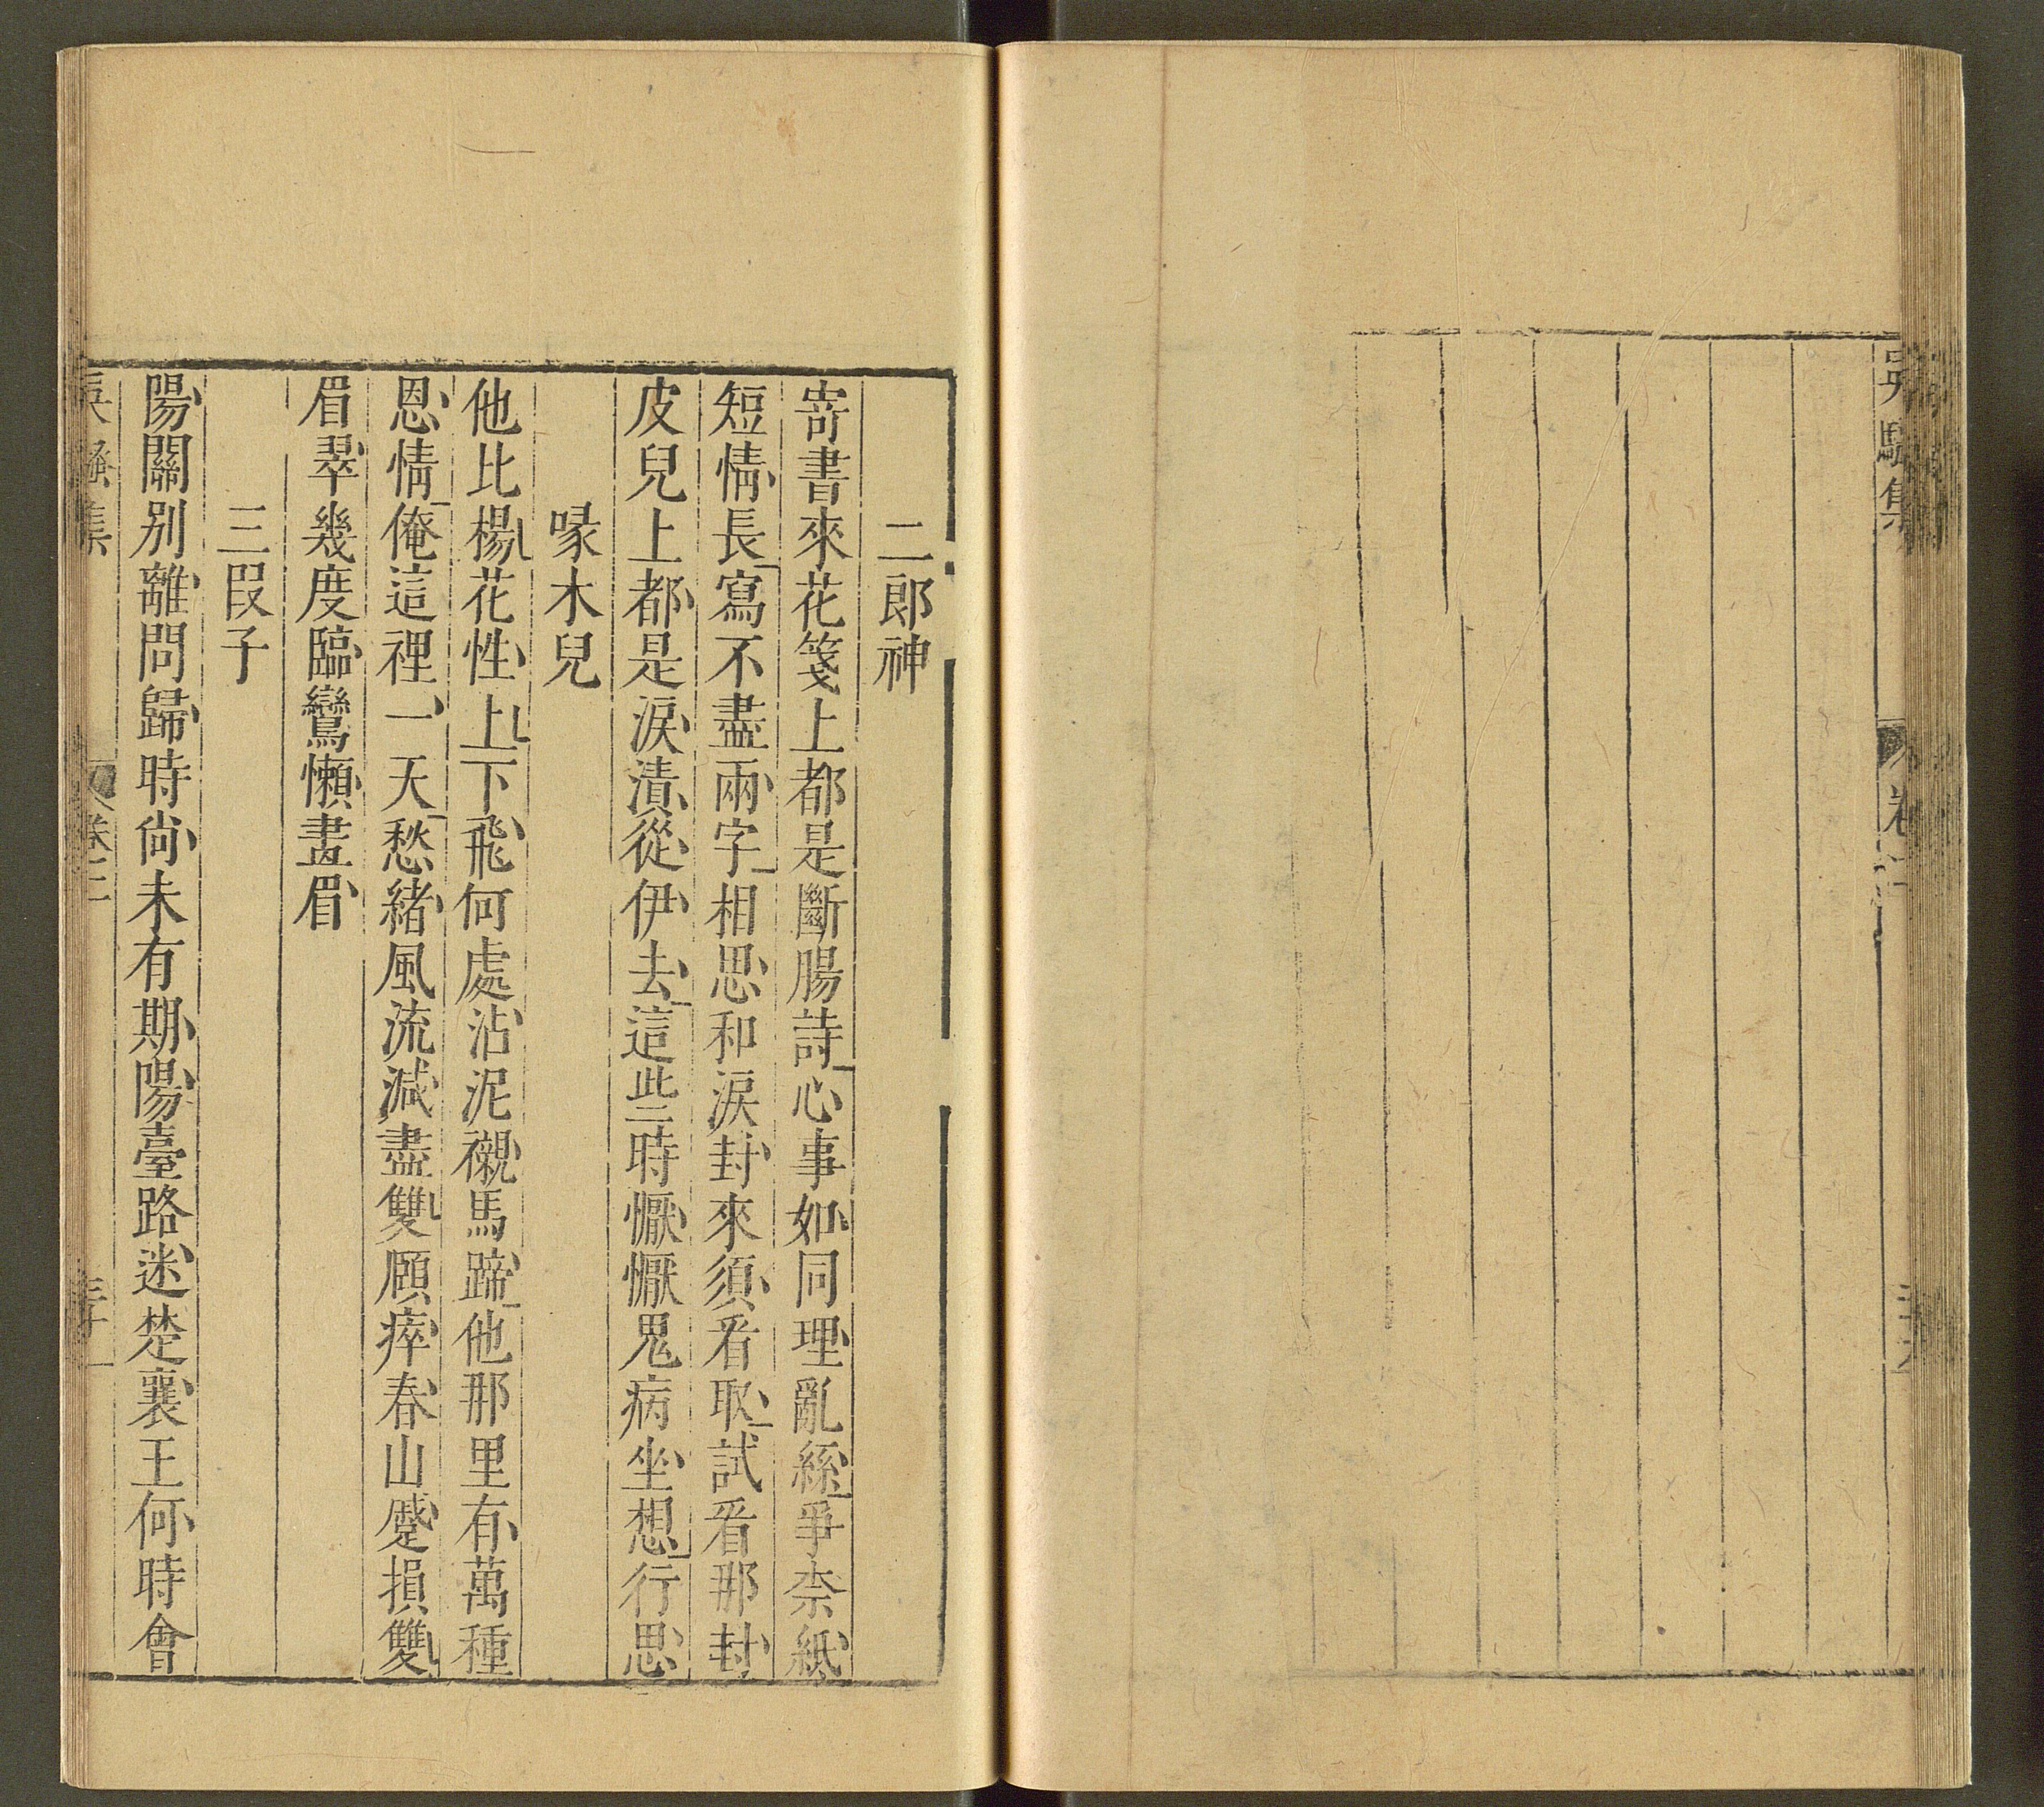 二郎神
寄書來花箋上都是斷腸詩心事如同理亂絲爭柰紙
短情長寫不盡兩字相思和淚封來須看取試看那封
皮兒上都是淚漬從伊去這些時懨懨鬼病坐想行思
啄木兒
他比楊花性上下飛何處沾泥襯馬蹄他那里有萬種
恩情俺這裡一天愁緒風流減盡雙顋瘁春山蹙損雙
眉翠幾度臨鸞懶畫眉
三叚子
陽關别離問歸時尙未有期陽臺路迷楚襄王何時會
吳騷集 卷二